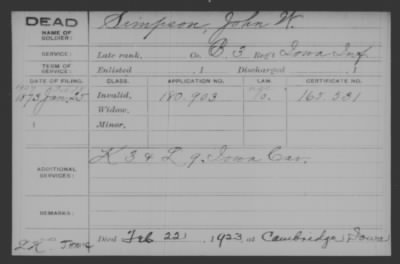 DEAD
NAME OF SOLDIER:
Simpson, John W.
SERVICE:
Late rank, Co. B. 3 Reg't Iowa Inf
TERM OF SERVICE:
Enlisted , 1 Discharged , 1
DATE OF FILING. CLASS. APPLICATION NO. LAW. CERTIFICATE NO.
1873 Jan. 25 Invalid, 180.903 165.531
Widow,
1 Minor,
ADDITIONAL SERVICES:
K 3 & L 9. Iowa Cav.
REMARKS:
Died Feb 22, 1923, at Cambridge, Iowa